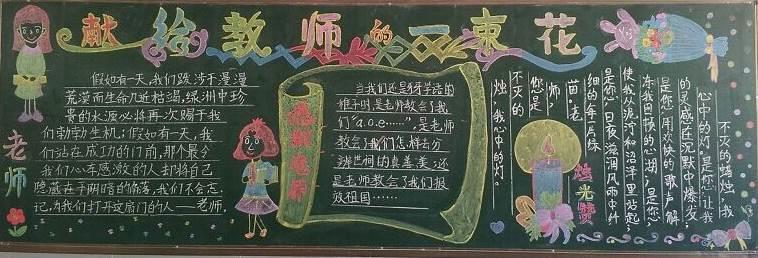 献给教师的一束花
老师
假如有一天,我们跋涉于漫漫
荒漠而生命几近枯竭,绿洲中珍
贵的水源必将再一次赐于我
们勃勃生机;假如有一天,我
们站在成功的门前,那个最令
我们心存感激的人却将自己
隐藏在于阴暗的角落,我们不会忘
记,为我们打开这扇门的人——老师,
感谢老师
当我们还是牙牙学语的
雏子时,是老师教会了我
们"a.o.e……",是老师
教会了我们怎样去分
辨世间的真善美,还
是老师教会了我们报
效祖国……
烛光赞
不灭的蜡烛,我
心中的灯,是您,让我
的灵感在沉默中爆发,
是您,用欢快的歌声解
冻我冰顿的心湖,是您,
使我从泥泞和沼泽里站起,
是您,日夜滋润风雨中纤
细的每一片绿
苗。老
师,
您是
不灭的
烛,我心中的灯。